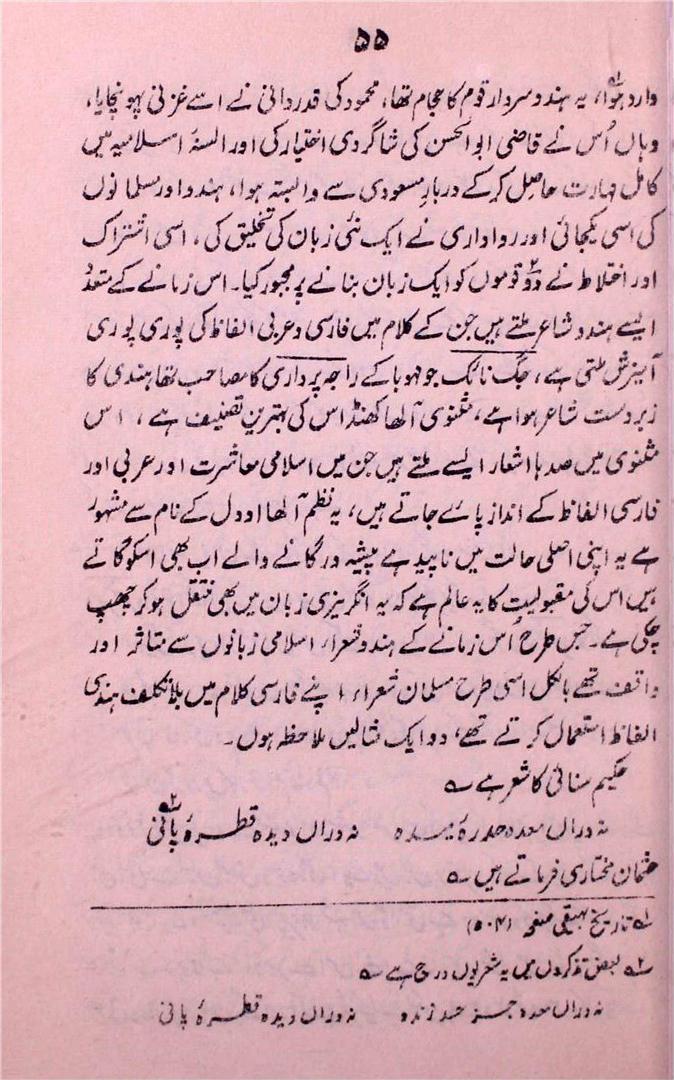 ۵۵
وارد ہوا، یہ ہندو سردار قوم کا حجام تھا، محمود کی قدردانی نے اسے غزنی پہونچایا،
وہاں اُس نے قاضی ابوالحسن کی شاگردی اختیار کی اور السنۂ اسلامیہ میں
کامل مہارت حاصل کرکے دربار مسعودی سے وابستہ ہوا، ہندو اور مسلمانوں
کی اسی یکجائی اور رواداری نے ایک نئی زبان کی تخلیق کی، اسی اشتراک
اور اختلاط نے دو قوموں کو ایک زبان بنانے پر مجبور کیا۔ اس زمانے کے متعدد
ایسے ہندو شاعر ملتے ہیں جن کے کلام میں فارسی و عربی الفاظ کی پوری پوری
آمیزش ملتی ہے، جگ نائک جو مہوبا کے راجہ پرداری کا مصاحب تھا ہندی کا
زبردست شاعر ہوا ہے، مثنوی آلھا کھنڈ اس کی بہترین تصنیف ہے، اس
مثنوی میں صدہا اشعار ایسے ملتے ہیں جن میں اسلامی معاشرت اور عربی اور
فارسی الفاظ کے انداز پائے جاتے ہیں، یہ نظم آلھا اودل کے نام سے مشہور
ہے یہ اپنی اصلی حالت میں ناپید ہے پیشہ ور گانے والے اب بھی اسکو گاتے
ہیں اس کی مقبولیت کا یہ عالم ہے کہ یہ انگریزی زبان میں بھی منتقل ہوکر چھپ
چکی ہے۔ جس طرح اُس زمانے کے ہندو شعراء اسلامی زبانوں سے متاثر اور
واقف تھے بالکل اسی طرح مسلمان شعراء اپنے فارسی کلام میں بلا تکلف ہندی
الفاظ استعمال کرتے تھے، دو ایک مثالیں ملاحظہ ہوں۔
حکیم سنائی کا شعر ہے ؎
نہ دراں معدہ خوردۂ میدہ نہ دراں دیدہ قطرۂ پانی ۲؎
عثمان مختاری فرماتے ہیں ؎
۱؎ تاریخ بیہقی صفحہ (۵۰۴)
۲؎ بعض تذکروں میں یہ شعر یوں درج ہے ؎
نہ دراں معدہ جز زندہ نہ دراں دیدہ قطرۂ پانی